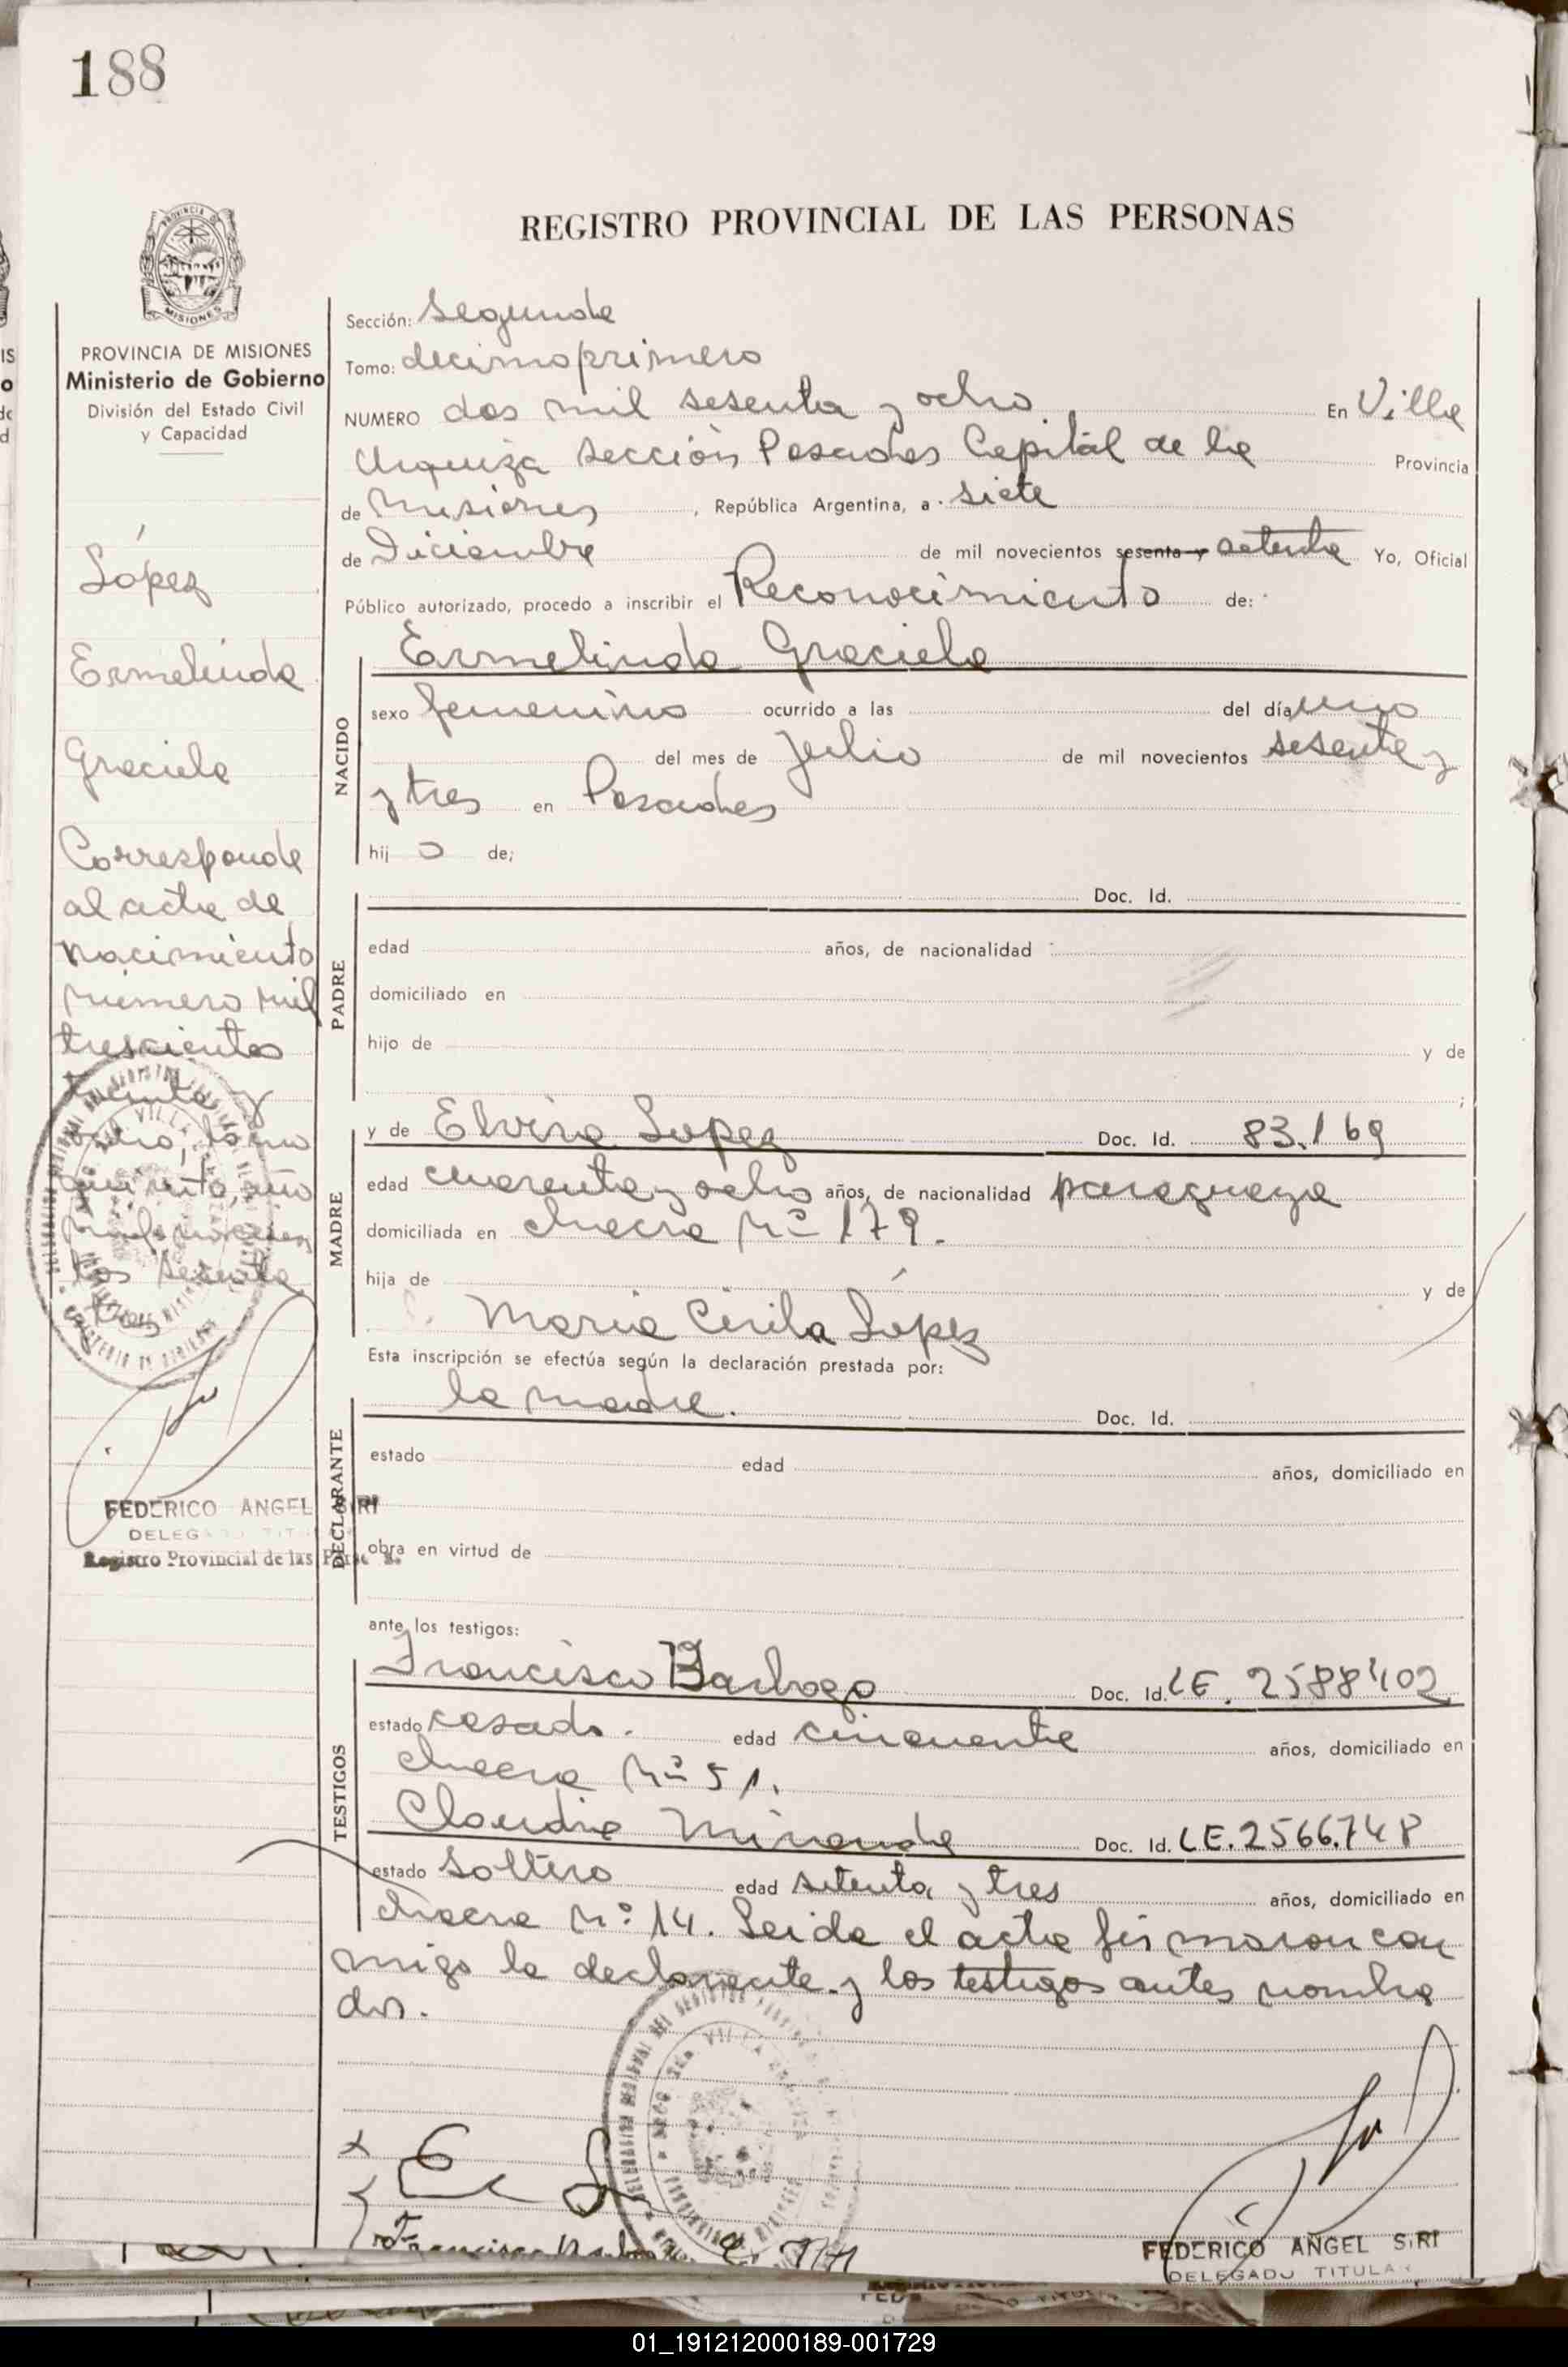 188
REGISTRO PROVINCIAL DE LAS PERSONAS
PROVINCIA DE MISIONES
Ministerio de Gobierno
División del Estado Civil
y Capacidad
López
Ermelinda
Graciela
Corresponde
al acta de
nacimiento
número mil
trescientos
treinta y
ocho, tomo
quinto, año
mil novecien
tos sesenta
tres
FEDERICO ANGEL SIRI
DELEGADO TITU
Registro Provincial de las Pers
Sección: Segunda
Tomo: decimoprimero
NUMERO dos mil sesenta y ocho En Villa
Urquiza Sección Posadas Capital de la Provincia
de Misiones, República Argentina, a siete
de Diciembre de mil novecientos sesenta y setenta Yo, Oficial
Público autorizado, procedo a inscribir el Reconocimiento de:
Ermelinda Graciela
NACIDO
sexo femenino ocurrido a las del día uno
del mes de Julio de mil novecientos sesenta y
y tres en Posadas
hij a de;
PADRE
Doc. Id.
edad años, de nacionalidad
domiciliado en
hijo de y de
;
MADRE
y de Elvira Lopez Doc. Id. 83.169
edad cuarenta y ocho años, de nacionalidad paraguaya
domiciliada en chacra Nº 179.
hija de y de
María Cirila Lopez
Esta inscripción se efectúa según la declaración prestada por:
DECLARANTE
la madre. Doc. Id.
estado edad años, domiciliado en
obra en virtud de
ante los testigos:
TESTIGOS
Francisco Doc. Id. LE. 2588402
estado casado. edad cincuenta años, domiciliado en
chacra Nº 51.
Claudio Miranda Doc. Id. LE. 2566.748
estado soltero edad setenta y tres años, domiciliado en
chacra Nº 14. Leida el acta firmaron con
migo la declarante y los testigos antes nombra
dos.
Francisco
FEDERICO ANGEL SIRI
DELEGADO TITULAR
01_191212000189-001729